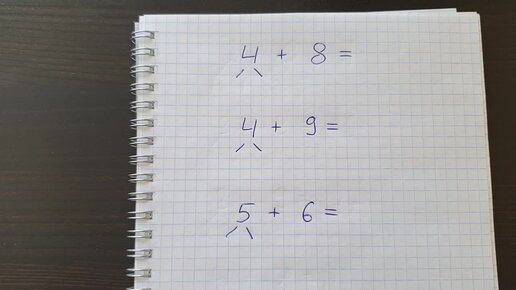 4 + 8 =
4 + 9 =
5 + 6 =